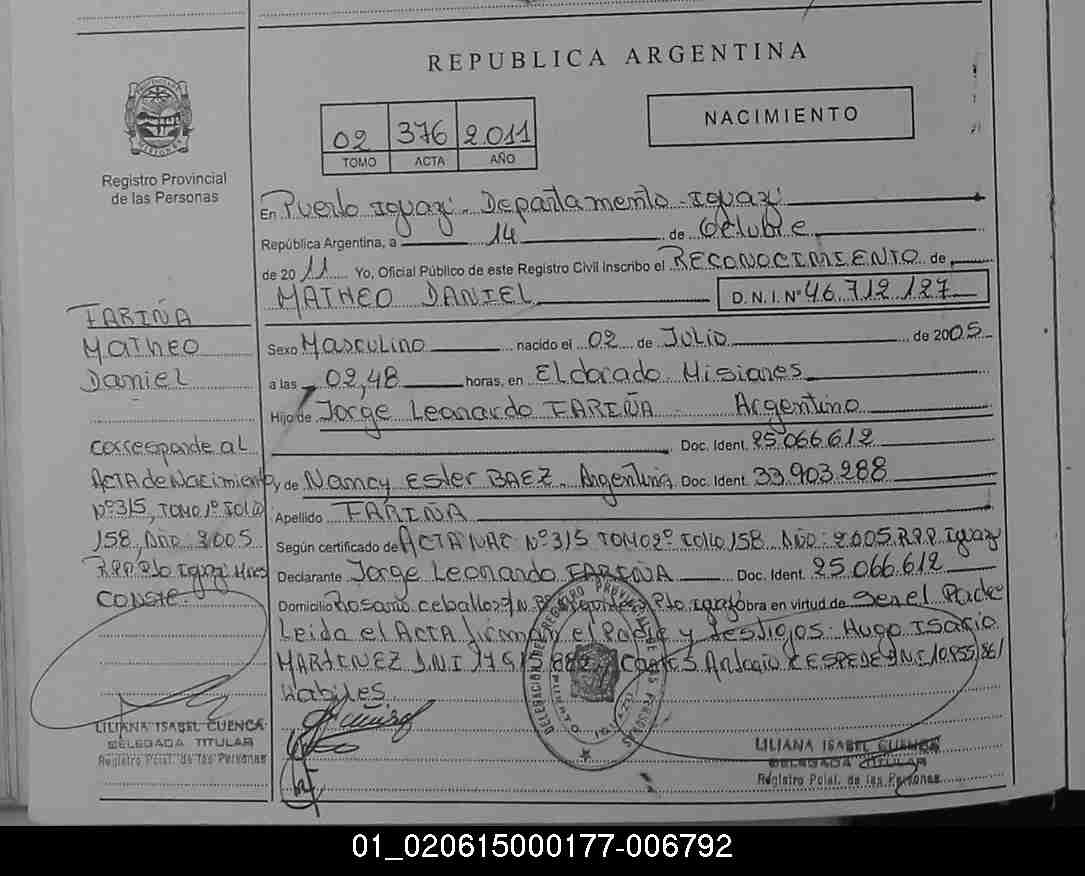 REPUBLICA ARGENTINA
NACIMIENTO
02 376 2.011
TOMO ACTA AÑO
Registro Provincial
de las Personas
En Puerto Iguazú. Departamento - Iguazú
República Argentina, a 14 de Octubre
de 2011 Yo, Oficial Público de este Registro Civil Inscribo el RECONOCIMIENTO de
MATHEO DANIEL D.N.I. Nº 46.712.127
FARIÑA
Matheo
Daniel
corresponde al
ACTA de Nacimiento
Nº 315, TOMO 1º FOLIO
158, AÑO: 2005
R.P.P. Pto Iguazú Mnes
CONSTE.
LILIANA ISABEL CUENCA
DELEGADA TITULAR
Registro Pcial. de las Personas
Sexo Masculino nacido el 02 de JULIO de 2005
a las 02,48 horas, en Eldorado Misiones
Hijo de Jorge Leonardo FARIÑA - Argentino
Doc. Ident. 25.066.612
y de Nancy Ester BAEZ. Argentina Doc. Ident. 33.903.288
Apellido FARIÑA
Según certificado de ACTA NAC Nº 315 TOMO 2º FOLIO 158 AÑO: 2005 R.P.P. Iguazú
Declarante Jorge Leonardo FARIÑA Doc. Ident. 25.066.612
Domicilio Rosario ceballos S/N Pto Iguazú obra en virtud de Ser el Padre
Leida el ACTA firman el Padre y testigos: Hugo Isacio
MARTINEZ D.N.I 17.915.882 Antonio CESPEDE DNI 10.855.861
Habiles
DELEGACION DEL REGISTRO PROVINCIAL DE LAS PERSONAS
LILIANA ISABEL CUENCA
DELEGADA TITULAR
Registro Pcial. de las Personas
01_020615000177-006792